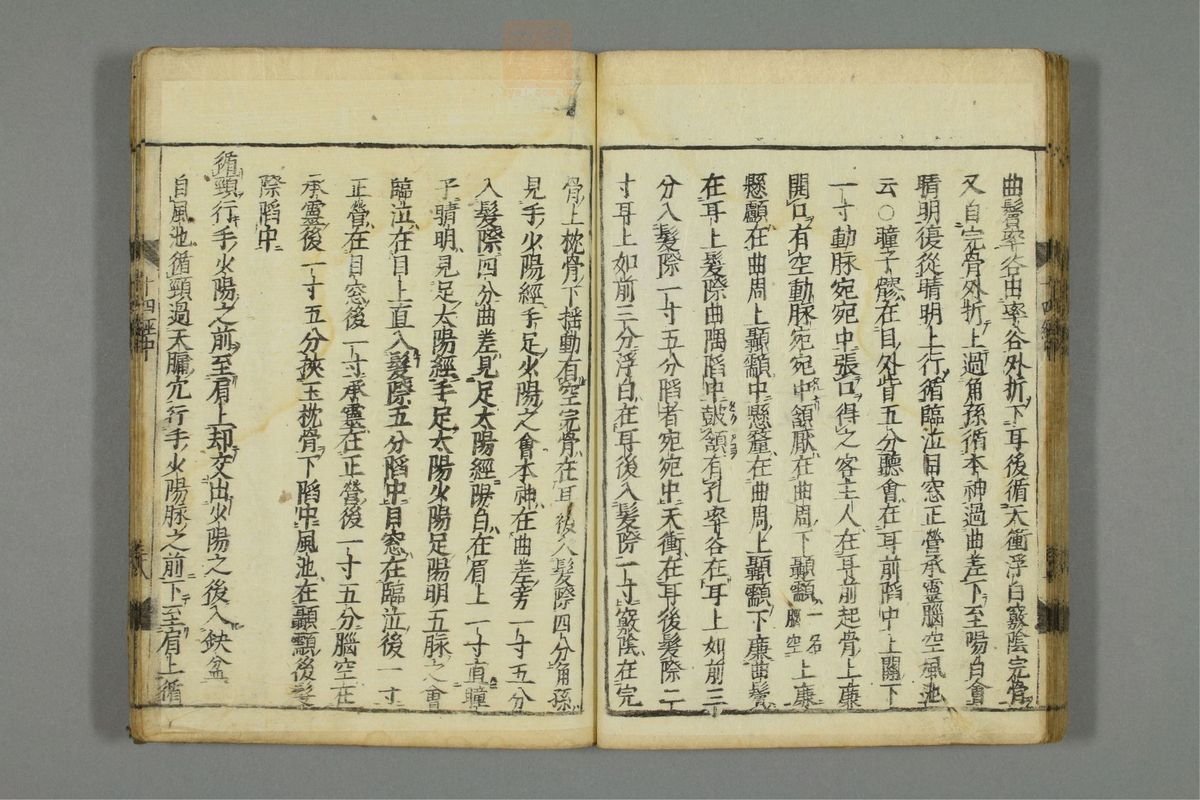 曲鬢率谷由率谷外折下耳後循天衝浮白竅陰完骨
又自完骨外折上過角孫循本神過曲差下至陽白會
睛明復從睛明上行循臨泣目窓正營承靈腦空風池
云○瞳子髎在目外眥五分聽會在耳前陷中上關下
一寸動脉宛宛中張口得之客主人在耳前起骨上廉
開口有空動脉宛宛中頷厭在曲周下顳顬一名腦空上廉
懸顱在曲周上顳顬中懸釐在曲周上顳顬下廉曲鬢
在耳上髮際曲隅陷中鼓頷有孔率谷在耳上如前三
分入髮際一寸五分陷者宛宛中天衝在耳後髮際二
寸耳上如前三分浮白在耳後入髮際一寸竅陰在完
骨上枕骨下揺動有空完骨在耳後入髮際四分角孫
見手少陽經手足少陽之會本神在曲差旁一寸五分
入髮際四分曲差見足太陽經陽白在眉上一寸直瞳
子睛明見足太陽經手足太陽少陽足陽明五脉之會
臨泣在目上直入髮際五分陷中目窓在臨泣後一寸
正營在目窓後一寸承靈在正營後一寸五分腦空在
承靈後一寸五分挾玉枕骨下陷中風池在顳顬後髮
際陷中
循頸行手少陽之前至肩上却交出少陽之後入缺盆
自風池循頸過天牖穴行手少陽脉之前下至肩上循
十四經中